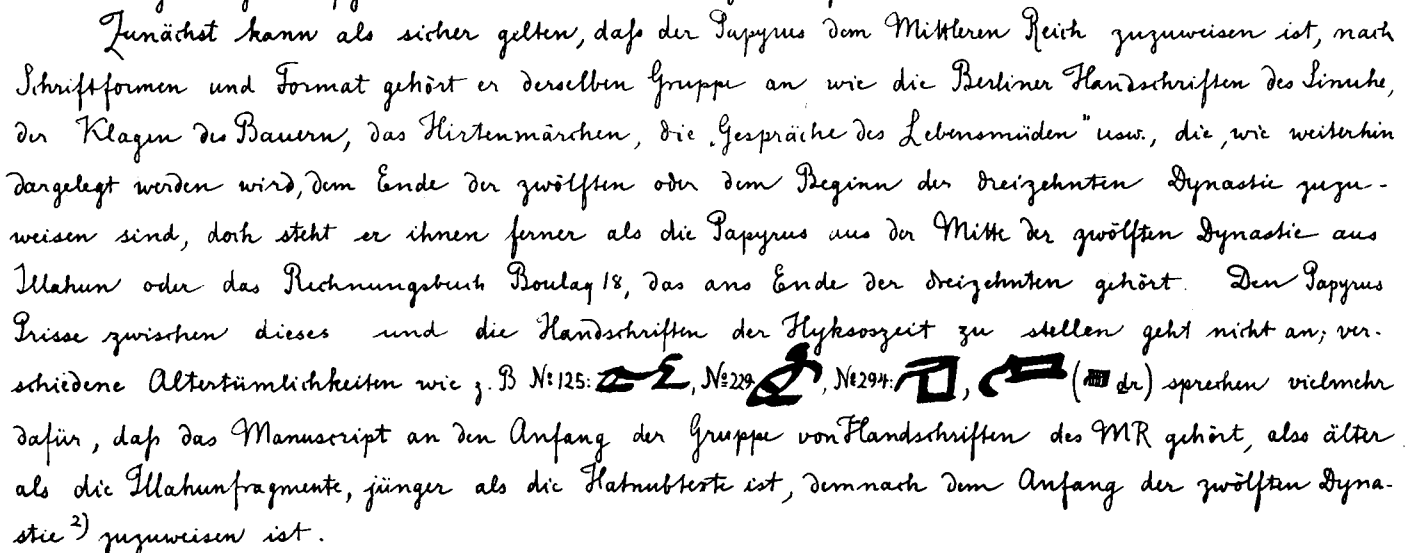 Zunächst kann als sicher gelten, daß der Papyrus dem Mittleren Reich zuzuweisen ist, nach
Schriftformen und Format gehört er derselben Gruppe an wie die Berliner Handschriften des Sinuhe,
der Klagen des Bauern, das Hirtenmärchen, die „Gespräche des Lebensmüden" usw., die, wie weiterhin
dargelegt werden wird, dem Ende der zwölften oder dem Beginn der dreizehnten Dynastie zuzu-
weisen sind, doch steht er ihnen ferner als die Papyrus aus der Mitte der zwölften Dynastie aus
Illahun oder das Rechnungsbuch Boulaq 18, das ans Ende der dreizehnten gehört. Den Papyrus
Prisse zwischen dieses und die Handschriften der Hyksoszeit zu stellen geht nicht an; ver-
schiedene Altertümlichkeiten wie z. B № 125: , № 229 , № 294: , ( dr) sprechen vielmehr
dafür, daß das Manuscript an den Anfang der Gruppe von Handschriften des MR gehört, also älter
als die Illahunfragmente, jünger als die Hatnubtexte ist, demnach dem Anfang der zwölften Dyna-
stie 2) zuzuweisen ist.